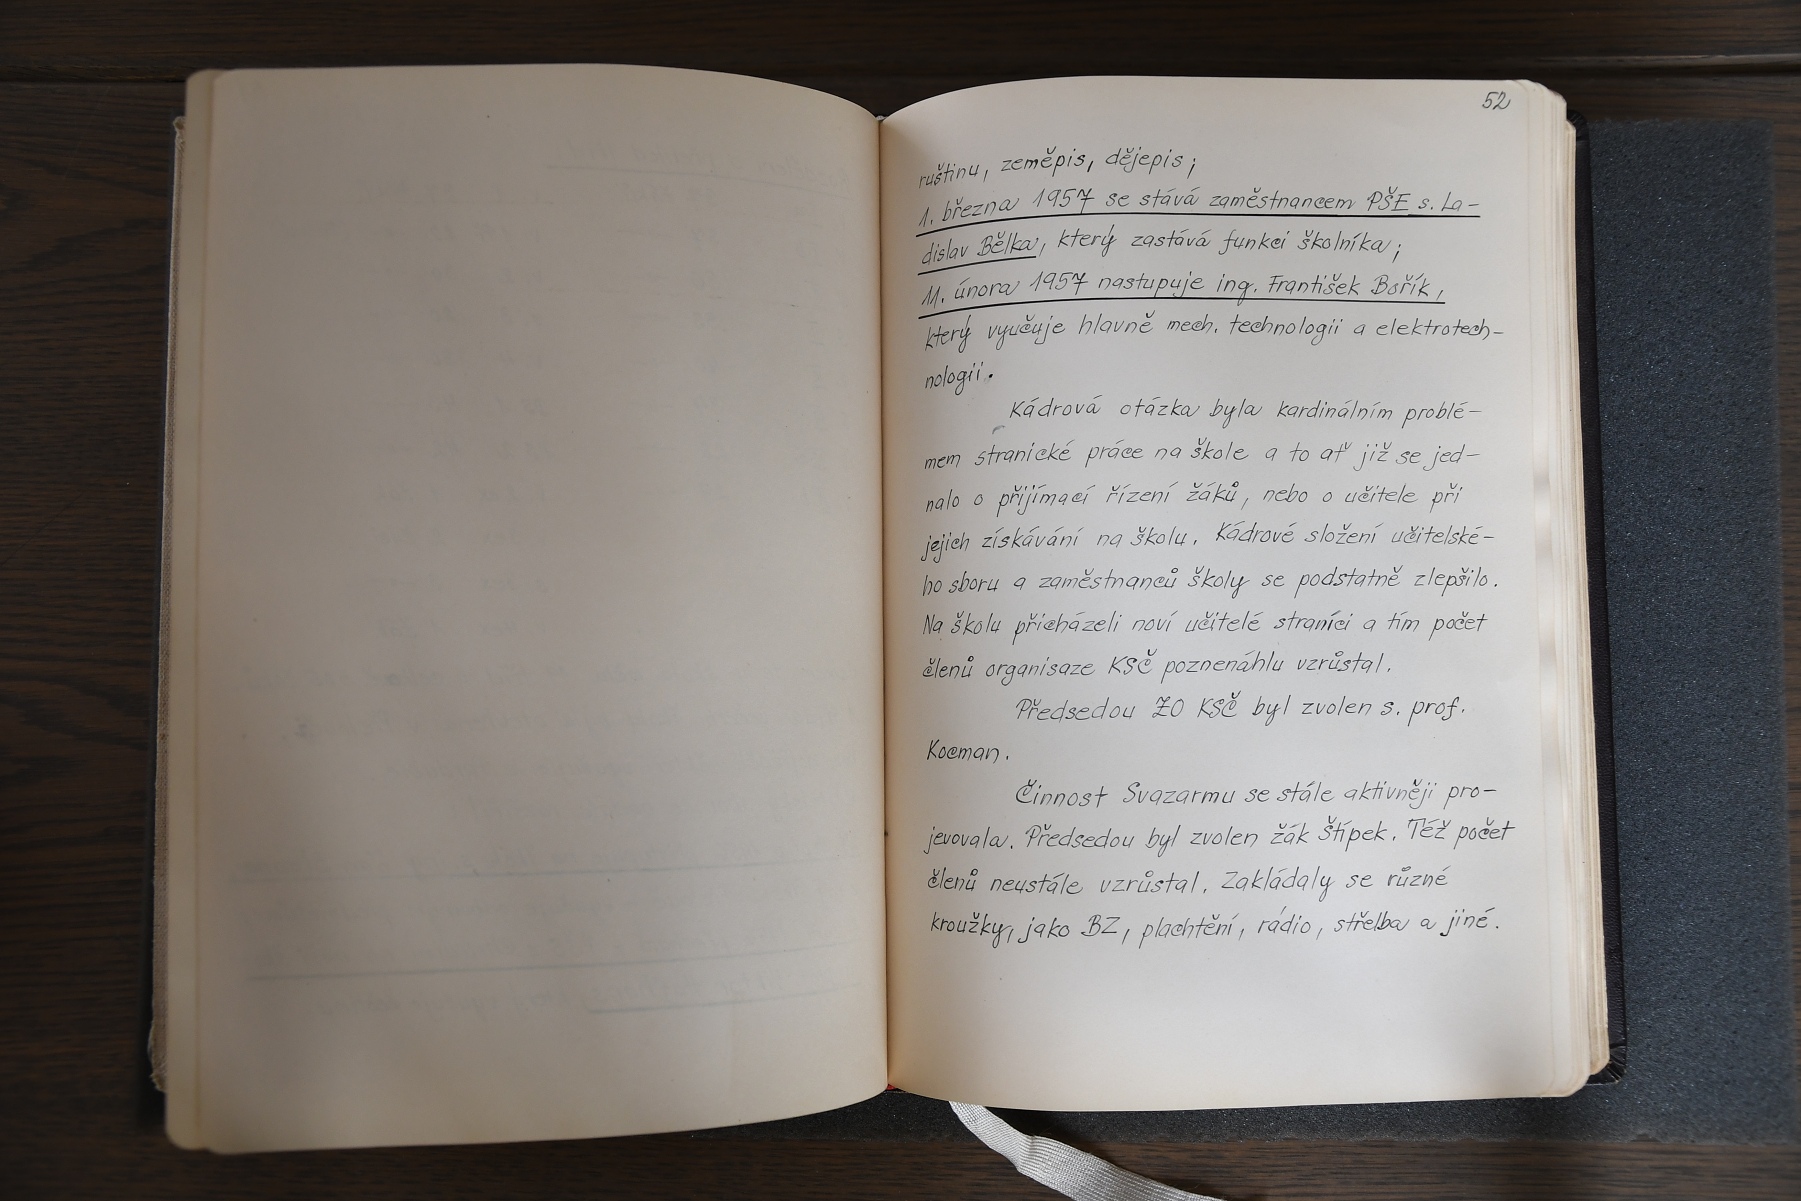 52
ruštinu, zeměpis, dějepis;
1. března 1957 se stává zaměstnancem PŠE s. La-
dislav Bělka, který zastává funkci školníka;
11. února 1957 nastupuje ing. František Bořík,
který vyučuje hlavně mech. technologii a elektrotech-
nologii.
Kádrová otázka byla kardinálním problé-
mem stranické práce na škole a to ať již se jed-
nalo o přijímací řízení žáků, nebo o učitele při
jejich získávání na školu. Kádrové složení učitelské-
ho sboru a zaměstnanců školy se podstatně zlepšilo.
Na školu přicházeli noví učitelé straníci a tím počet
členů organisaze KSČ poznenáhlu vzrůstal.
Předsedou ZO KSČ byl zvolen s. prof.
Kocman.
Činnost Svazarmu se stále aktivněji pro-
jevovala. Předsedou byl zvolen žák Štípek. Též počet
členů neustále vzrůstal. Zakládaly se různé
kroužky, jako BZ, plachtění, rádio, střelba a jiné.